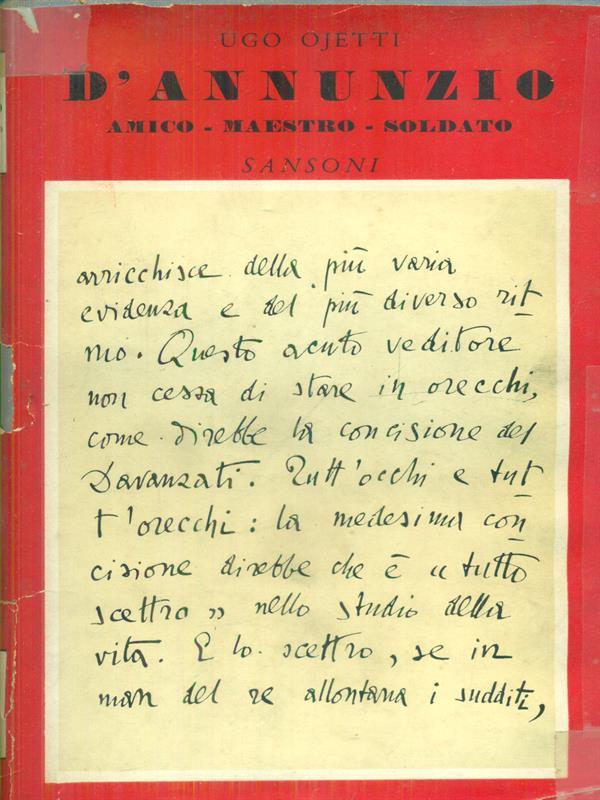 UGO OJETTI
D'ANNUNZIO
AMICO - MAESTRO - SOLDATO
SANSONI
arricchisce della più varia
evidenza e del più diverso rit-
mo. Questo acuto veditore
non cessa di stare in orecchi,
come direbbe la concisione del
Davanzati. Tutt'occhi e tut-
t'orecchi: la medesima con-
cisione direbbe che è "tutto
scettro" nello studio della
vita. E lo scettro, se in
man del re allontana i sudditi,